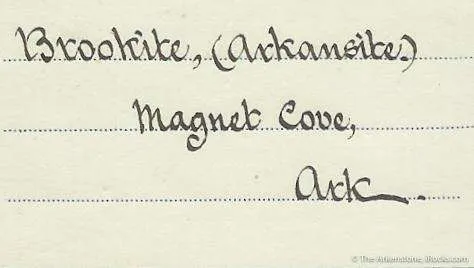 Brookite, (Arkansite.)
Magnet Cove,
Ark.
© The Arkenstone, iRocks.com